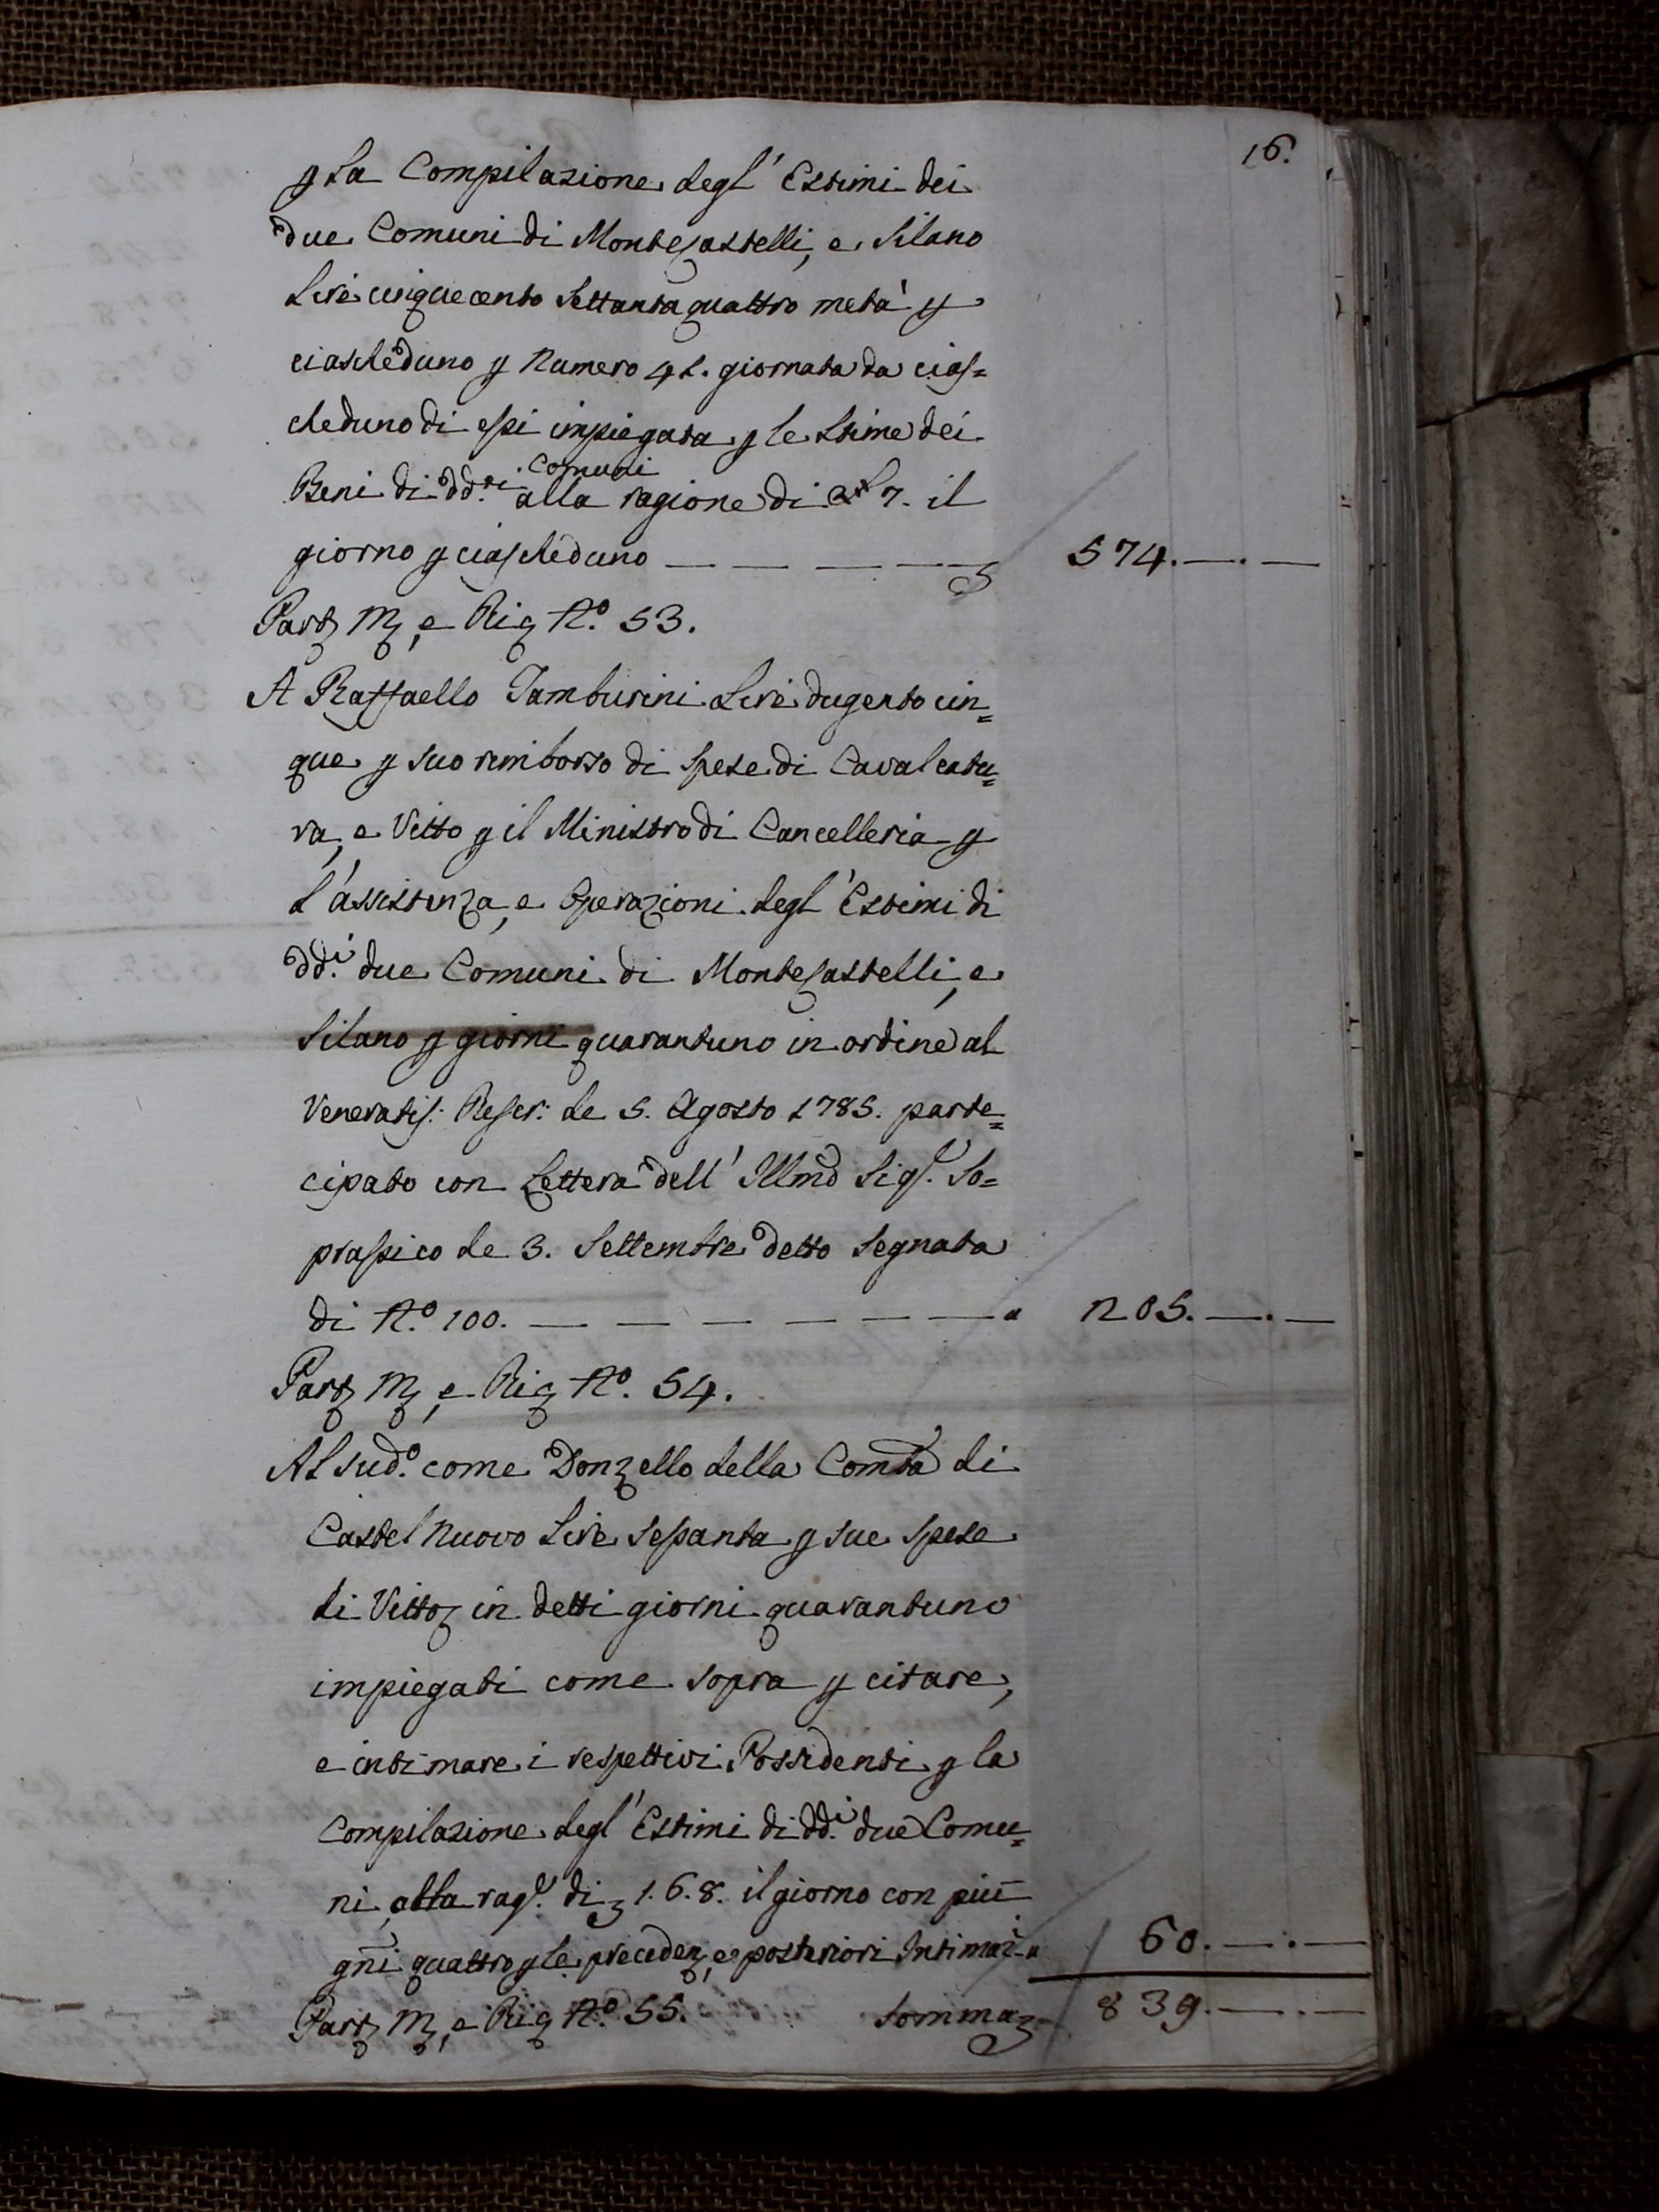 16.
p la Compilazione degl' Estimi dei
due Comuni di Montecastelli, e Silano
Lire cinquecento settanta quattro metà p
ciascheduno p Numero 41. giornata da cias=
cheduno di essi impiegata p le stime dei
Beni di dd.ti Comuni alla ragione di £ 7. il
giorno p ciascheduno — — — — 574.—.—
Part M, e Rig N.º 53.
A Raffaello Tamburini Lire dugento cin=
que p suo rimborso di spese di Cavalcatu=
ra, e Vitto p il Ministro di Cancelleria p
l'assistenza, e Operazioni degl' Estimi di
dd.i due Comuni di Montecastelli, e
Silano p giorni quarantuno in ordine al
Veneratis: Rescr: de 5. Agosto 1785. parte=
cipato con Lettera dell' Illmo Sig.r So=
prassico de 3. Settembre detto segnata
di N.º 100. — — — — — — 205.—.—
Part M, e Rig N.º 54.
Al sud.º come Donzello della Comtà di
Castel nuovo Lire sessanta p sue spese
di Vitto in detti giorni quarantuno
impiegati come sopra p citare,
e intimare i respettivi Possidenti p la
Compilazione degl' Estimi di dd.i due Comu=
ni, alla rag.e di 1.6.8. il giorno con più
gni quattro p le preceden, e posteriori Intimaz. 60.—.—
Part M, e Rig N.º 55. Somma 839.—.—